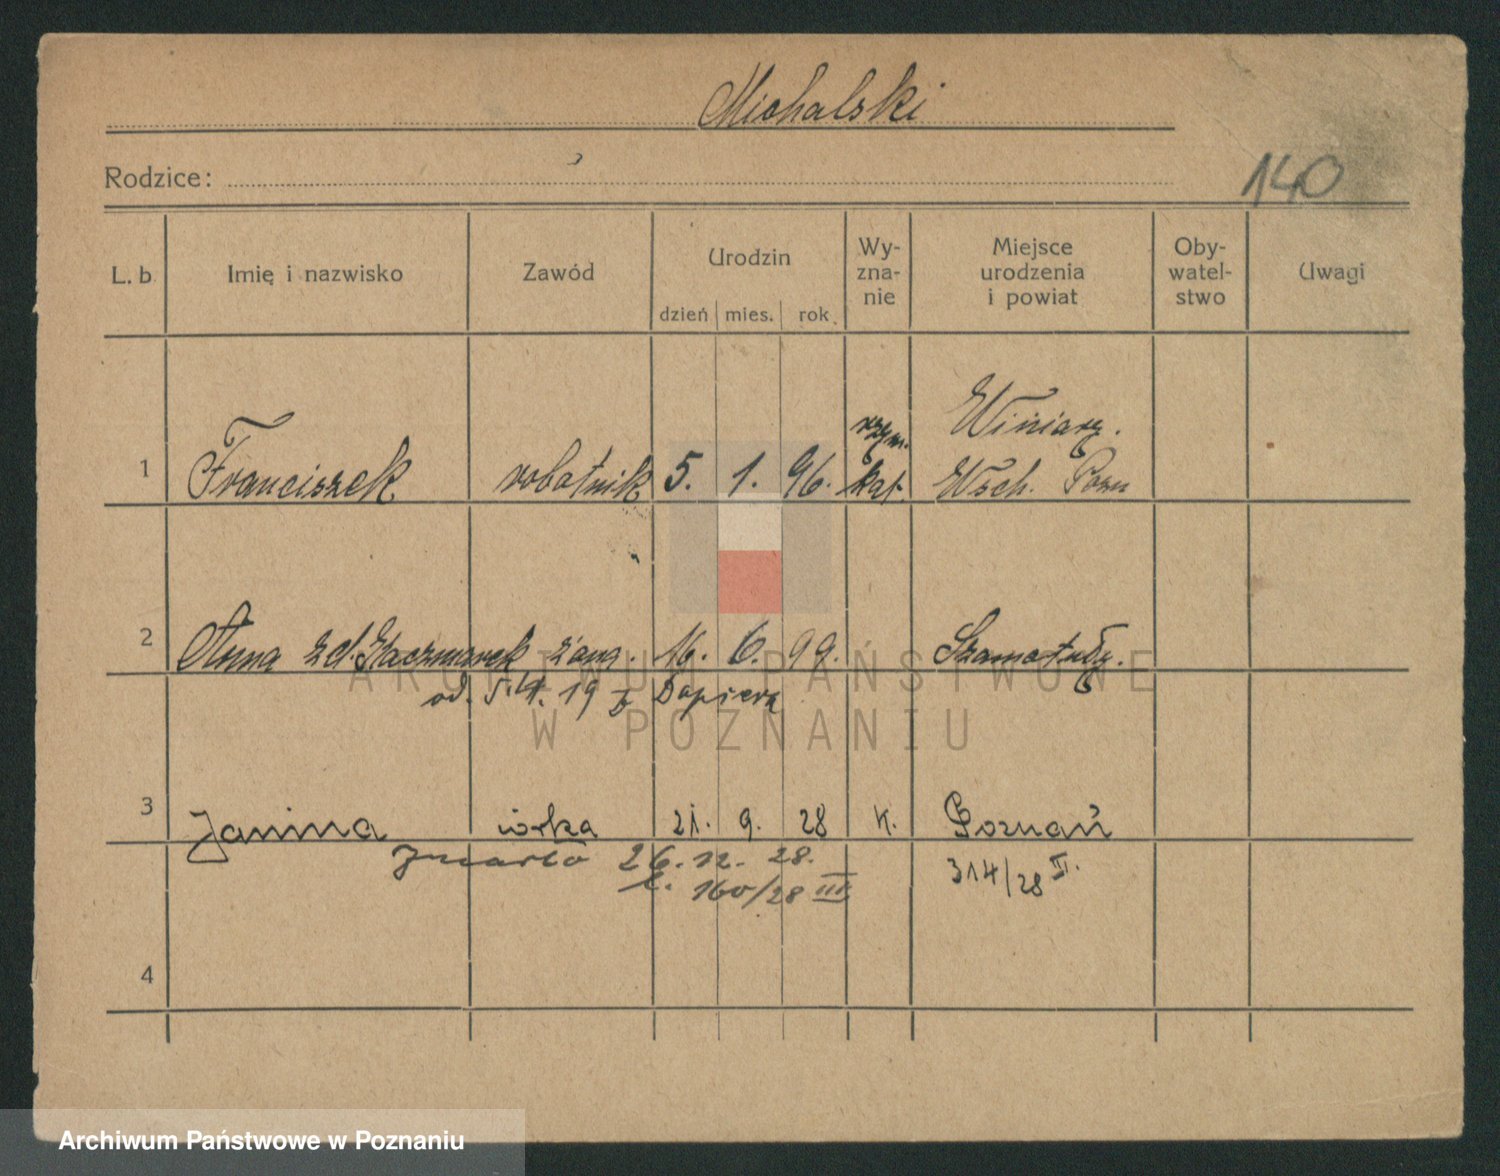 Michalski
Rodzice:
140
L. b. Imię i nazwisko Zawód Urodzin Wy-zna-nie Miejsce urodzenia i powiat Oby-watel-stwo Uwagi
dzień mies. rok
1 Franciszek robotnik 5. 1. 96. rzym. kat. Winiarz. Wsch. Pozn
2 Anna zd. Kaczmarek zam. 16. 6. 99. Szamotuły.
od. 5.4. 19 z
ARCHIWUM PAŃSTWOWE
W POZNANIU
3 Janina córka 21. 9. 28 k. Poznań
Zmarła 26. 12. 28. 314/28 II.
L. 160/28 III.
4
Archiwum Państwowe w Poznaniu